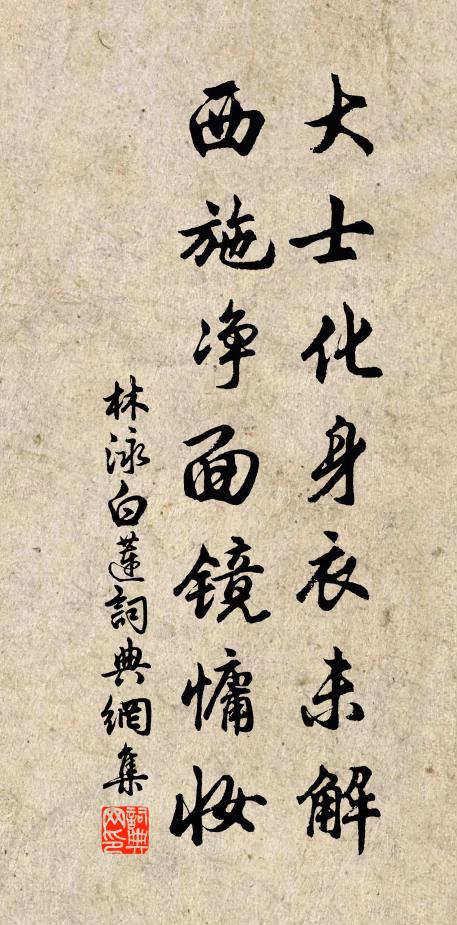 大士化身衣未解
西施净面镜慵妆
林泳白莲詞典網集
詞典网印